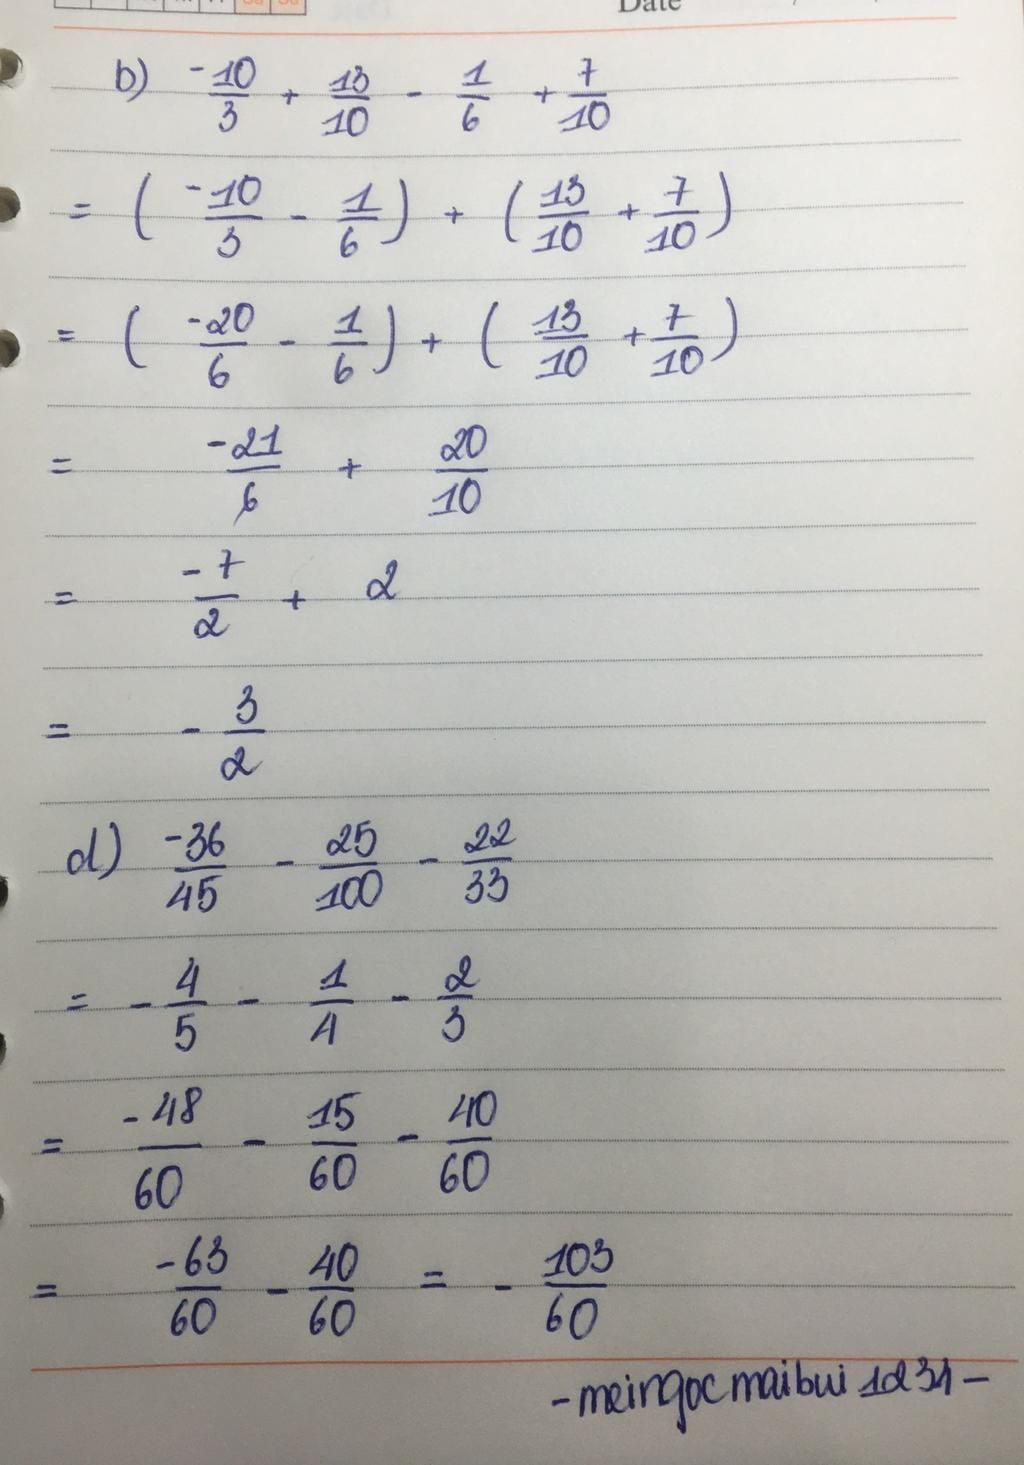 Date
b) -10/3 + 13/10 - 1/6 + 7/10
= ( -10/3 - 1/6 ) + ( 13/10 + 7/10 )
= ( -20/6 - 1/6 ) + ( 13/10 + 7/10 )
= -21/6 + 20/10
= -7/2 + 2
= - 3/2
d) -36/45 - 25/100 - 22/33
= - 4/5 - 1/4 - 2/3
= -48/60 - 15/60 - 40/60
= -63/60 - 40/60 = - 103/60
- meingocmaibui 1234 -